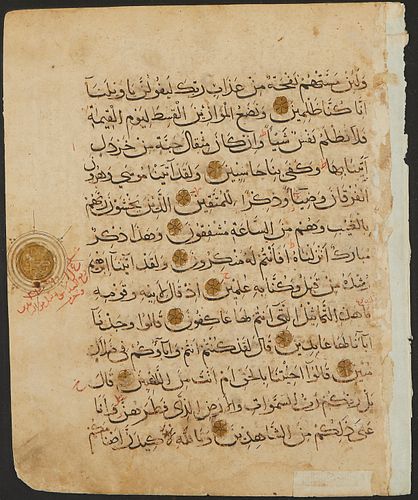 ولئن مستهم نفحة من عذاب ربك ليقولن يا ويلنا
انا كنا ظلمين ونضع الموازين القسط ليوم القيمة
فلا تظلم نفس شيئا وان كان مثقال حبة من خردل
اتينا بها وكفى بنا حاسبين ولقد آتينا موسى وهرون
الفرقان وضياء وذكرا للمتقين الذين يخشون ربهم
بالغيب وهم من الساعة مشفقون وهذا ذكر
مبارك انزلناه افانتم له منكرون ولقد آتينا ابرهيم
رشده من قبل وكنا به علمين اذ قال لابيه وقومه
ما هذه التماثيل التي انتم لها عاكفون قالوا وجدنا
آبانا لها عابدين قال لقد كنتم انتم وآباؤكم في ضلال
مبين قالوا اجئتنا بالحق ام انت من اللعبين قال
بل ربكم رب السموات والارض الذي فطرهن وانا
على ذلكم من الشاهدين وتالله لاكيدن اصنامكم